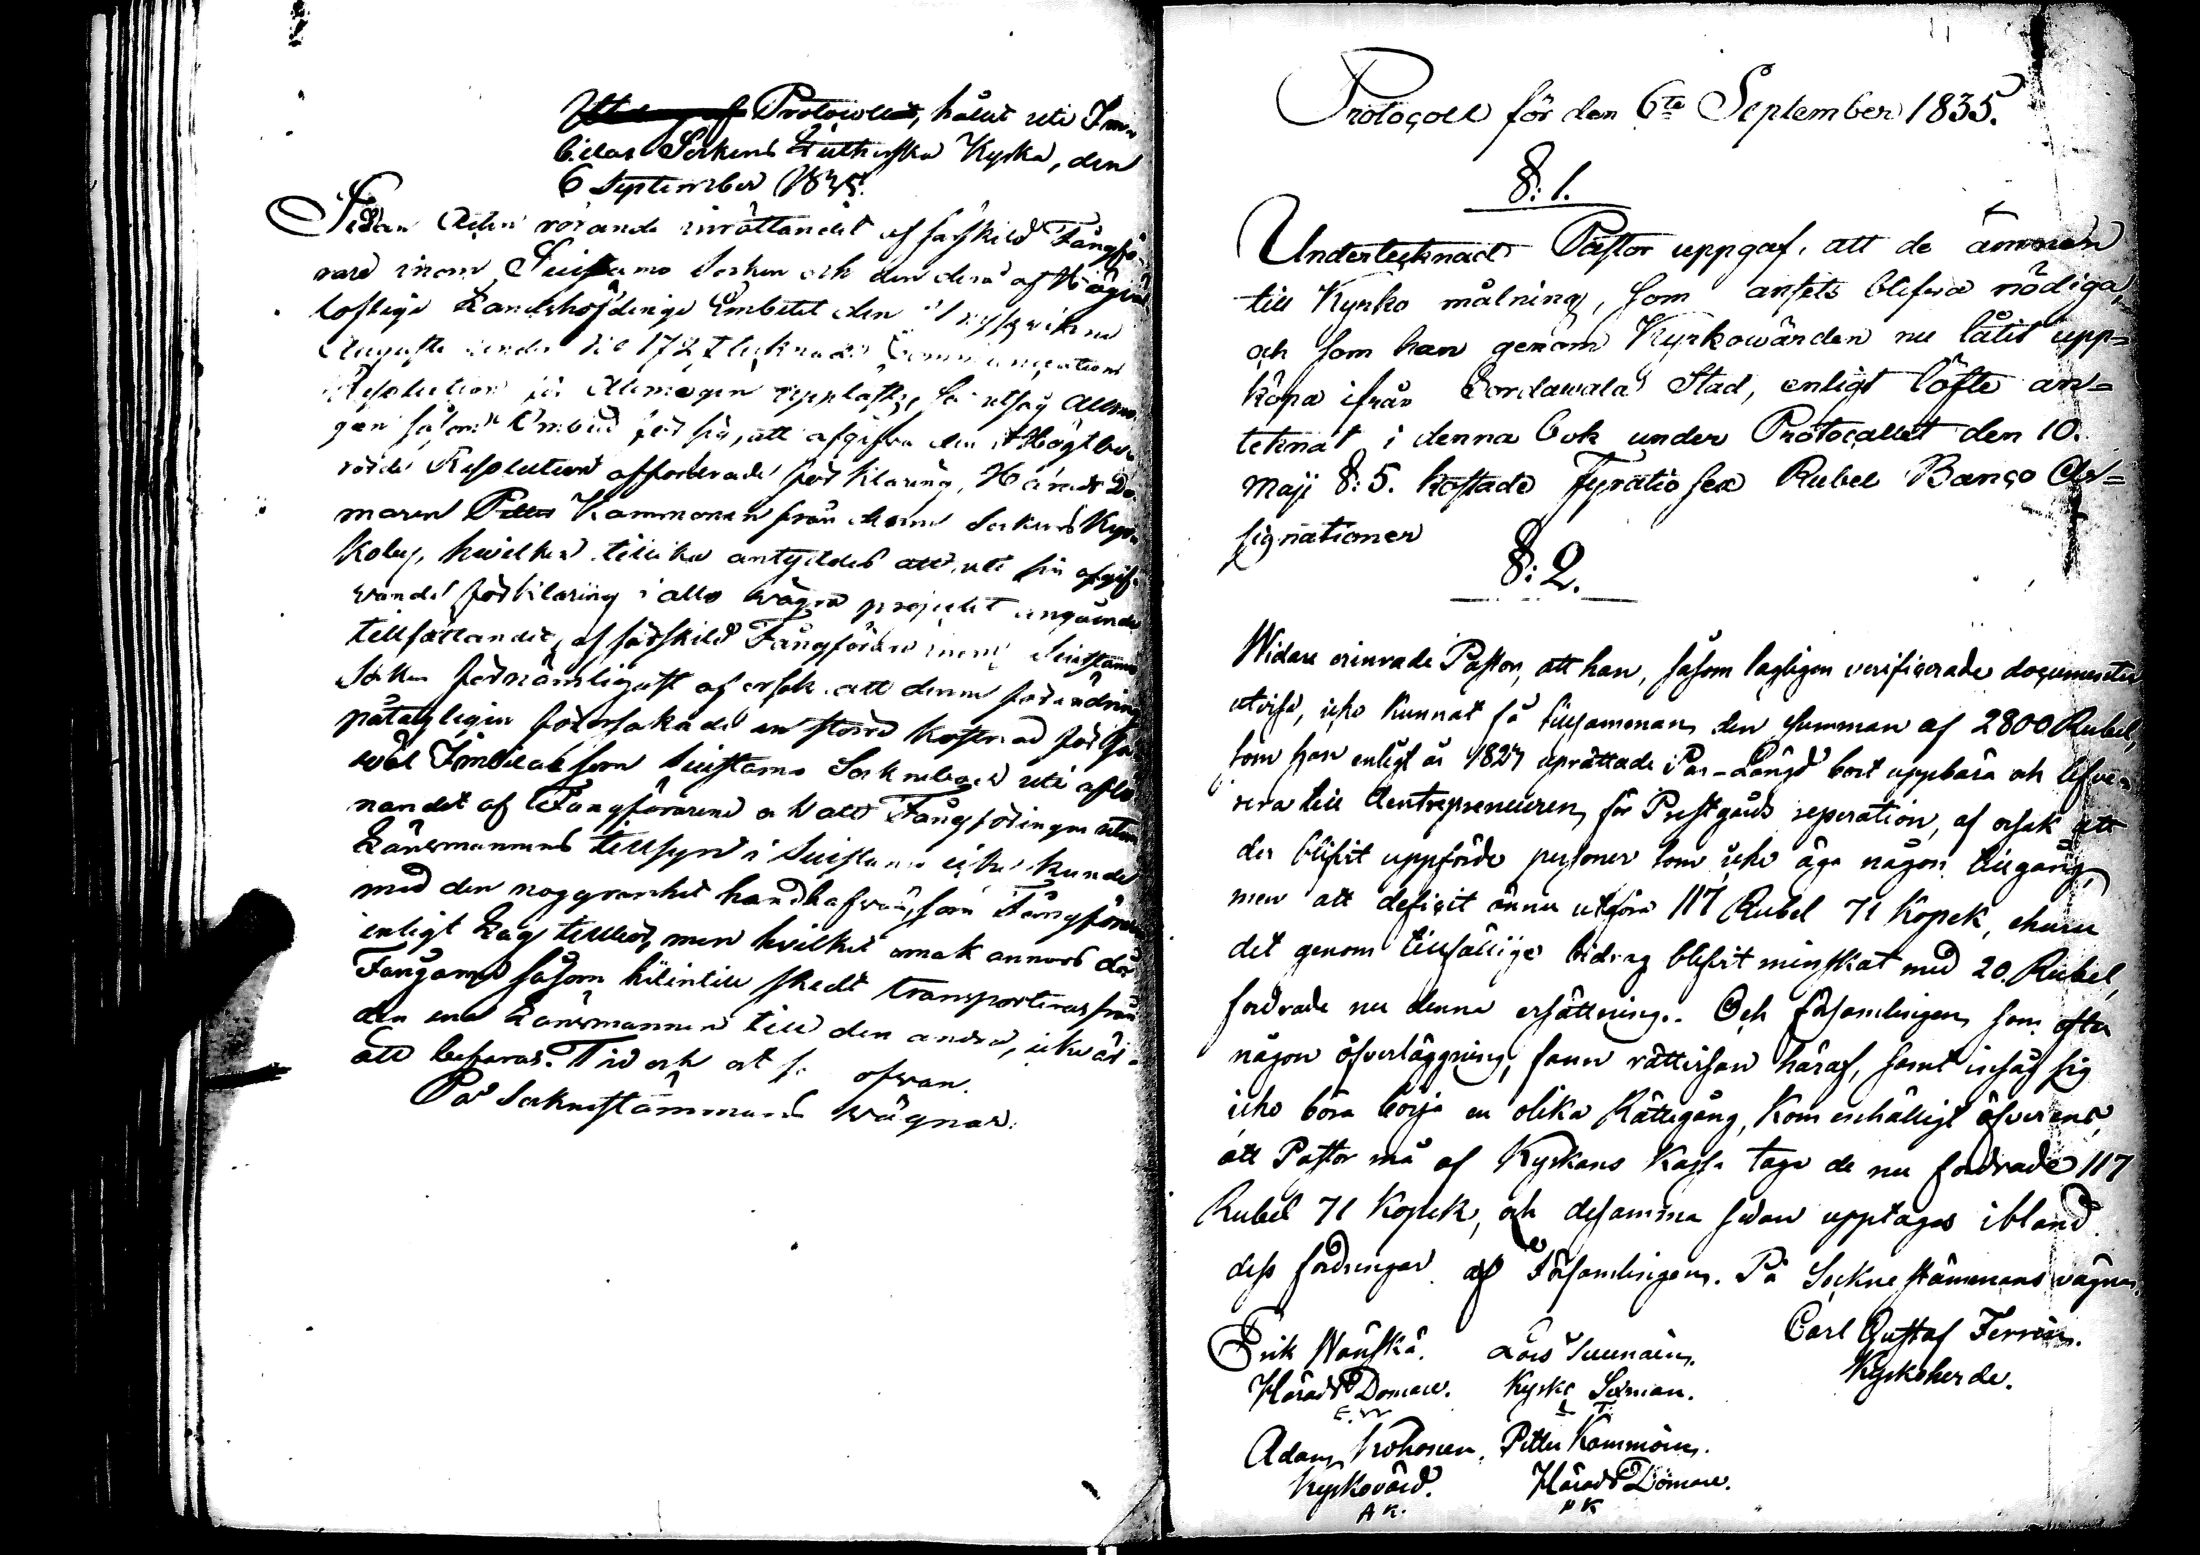 Protocoll, hållit uti Im=
bilax Sockens Lutherska Kyrka, den
6 September 1835.
Sedan Acten rörande inrättandet af särskild Fångfö-
rare inom Suistamo Socken och den deraf Högväl
loflige Landshöfdinge Embetet den
Augusti under No 1727 tecknade Communications
Resolution för Allmogen upplästs, så utsåg Allmo
gen såsom Ombud för sig, att afgifva den i Högtbe
rörde Resolution affordrade förklaring, Härads Do-
maren Petter Kammonen från denne Sockens Kyrko
koby, hvilken tillika antyddes att uti sin afgif-
vande förklaring i allo vägra projectet angående
tillsättandet af särskild Fångförare inom Suistamo
Socken förnämligast af orsak att denne förändring
påtagligen förorsakade en större kostnad för så
wäl Imbilax som Suistamo Sockneboer uti aflö
nandet af Fångförarene och att Fångföringen utan
Länsmannens tillsyn i Suistamo icke kunde
med den noggranhet handhafvas, som Fångföre
enligt Lag tillhör, men hvilket omak annars der
Fångarne såsom hitintill skedt transporteras från
den ena Länsmannen till den andra, icke är
att befaras. Tid och ort som ofvan.
På Socknestämmans vägnar.
Protocoll för den 6te September 1835.
§: 1.
Undertecknad Pastor uppgaf, att de ämnen
till Kyrko målning, som ansets blifva nödiga,
och som han genom Kyrkowärden nu låtit upp=
köpa ifrån Sordawala Stad, enligt löfte an=
tecknat i denna bok under Protocallet den 10.
Maji §: 5. kostade Fyratio sex Rubel Banco As=
signationer
§: 2.
Widare erinrade Pastor, att han, såsom lagligen verificerade documenter
utvisa, icke kunnat få tillsamman den summan af 2800 Rubel,
som han enligt år 1827 uprättade Par-Längd bort uppbära och lefve-
rera till Entrepreneuren för Prestgårds reperation, af orsak att
der blifvit uppförde personer som icke äga någon tillgång,
men att deficit ännu utgöra 117 Rubel 71 Kopek, ehuru
det genom tillfällige bidrag blifvit minskat med 20. Rubel,
fordrade nu denna ersättning. Och Församlingen som efter
någon öfverläggning, fann rättvisan häraf, samt insåg sig
icke böra börja en olika Rättegång, kom enhälligt öfverens,
att Pastor må af Kyrkans Kassa taga de nu fordrade 117
Rubel 71 Kopek, och desamma sedan upptagas ibland
dess fordringar af Församlingen. På Sockne stämmans vägnar.
Carl Gustaf Ferrin.
Kyrkoherde.
Erik Wänskä. Lars
Härads Domare. Kyrko Sexman.
E. W L T.
Adam Kohonen. Petter Kammonen.
Kyrkovärd. Härads Domare.
A K. P K